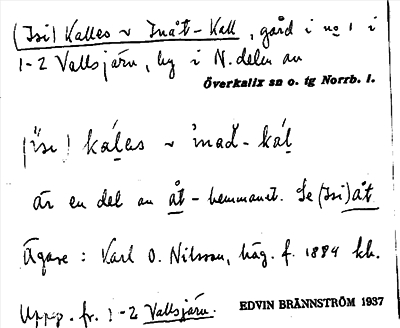 (Isi) Kalles ~ Inåt-Kall, gård i no 1 i
1-2 Vallsjärv, by i N. delen av
Överkalix sn o. tg Norrb. l.
(ɪsɪ) kálas ~ ɪnað-kál
är en del av åt-hemmanet. Se (Isi) åt
Ägare: Karl O. Nilsson, häg. f. 1884 kk.
Uppg. fr. 1-2 Vallsjärv.
EDVIN BRÄNNSTRÖM 1937